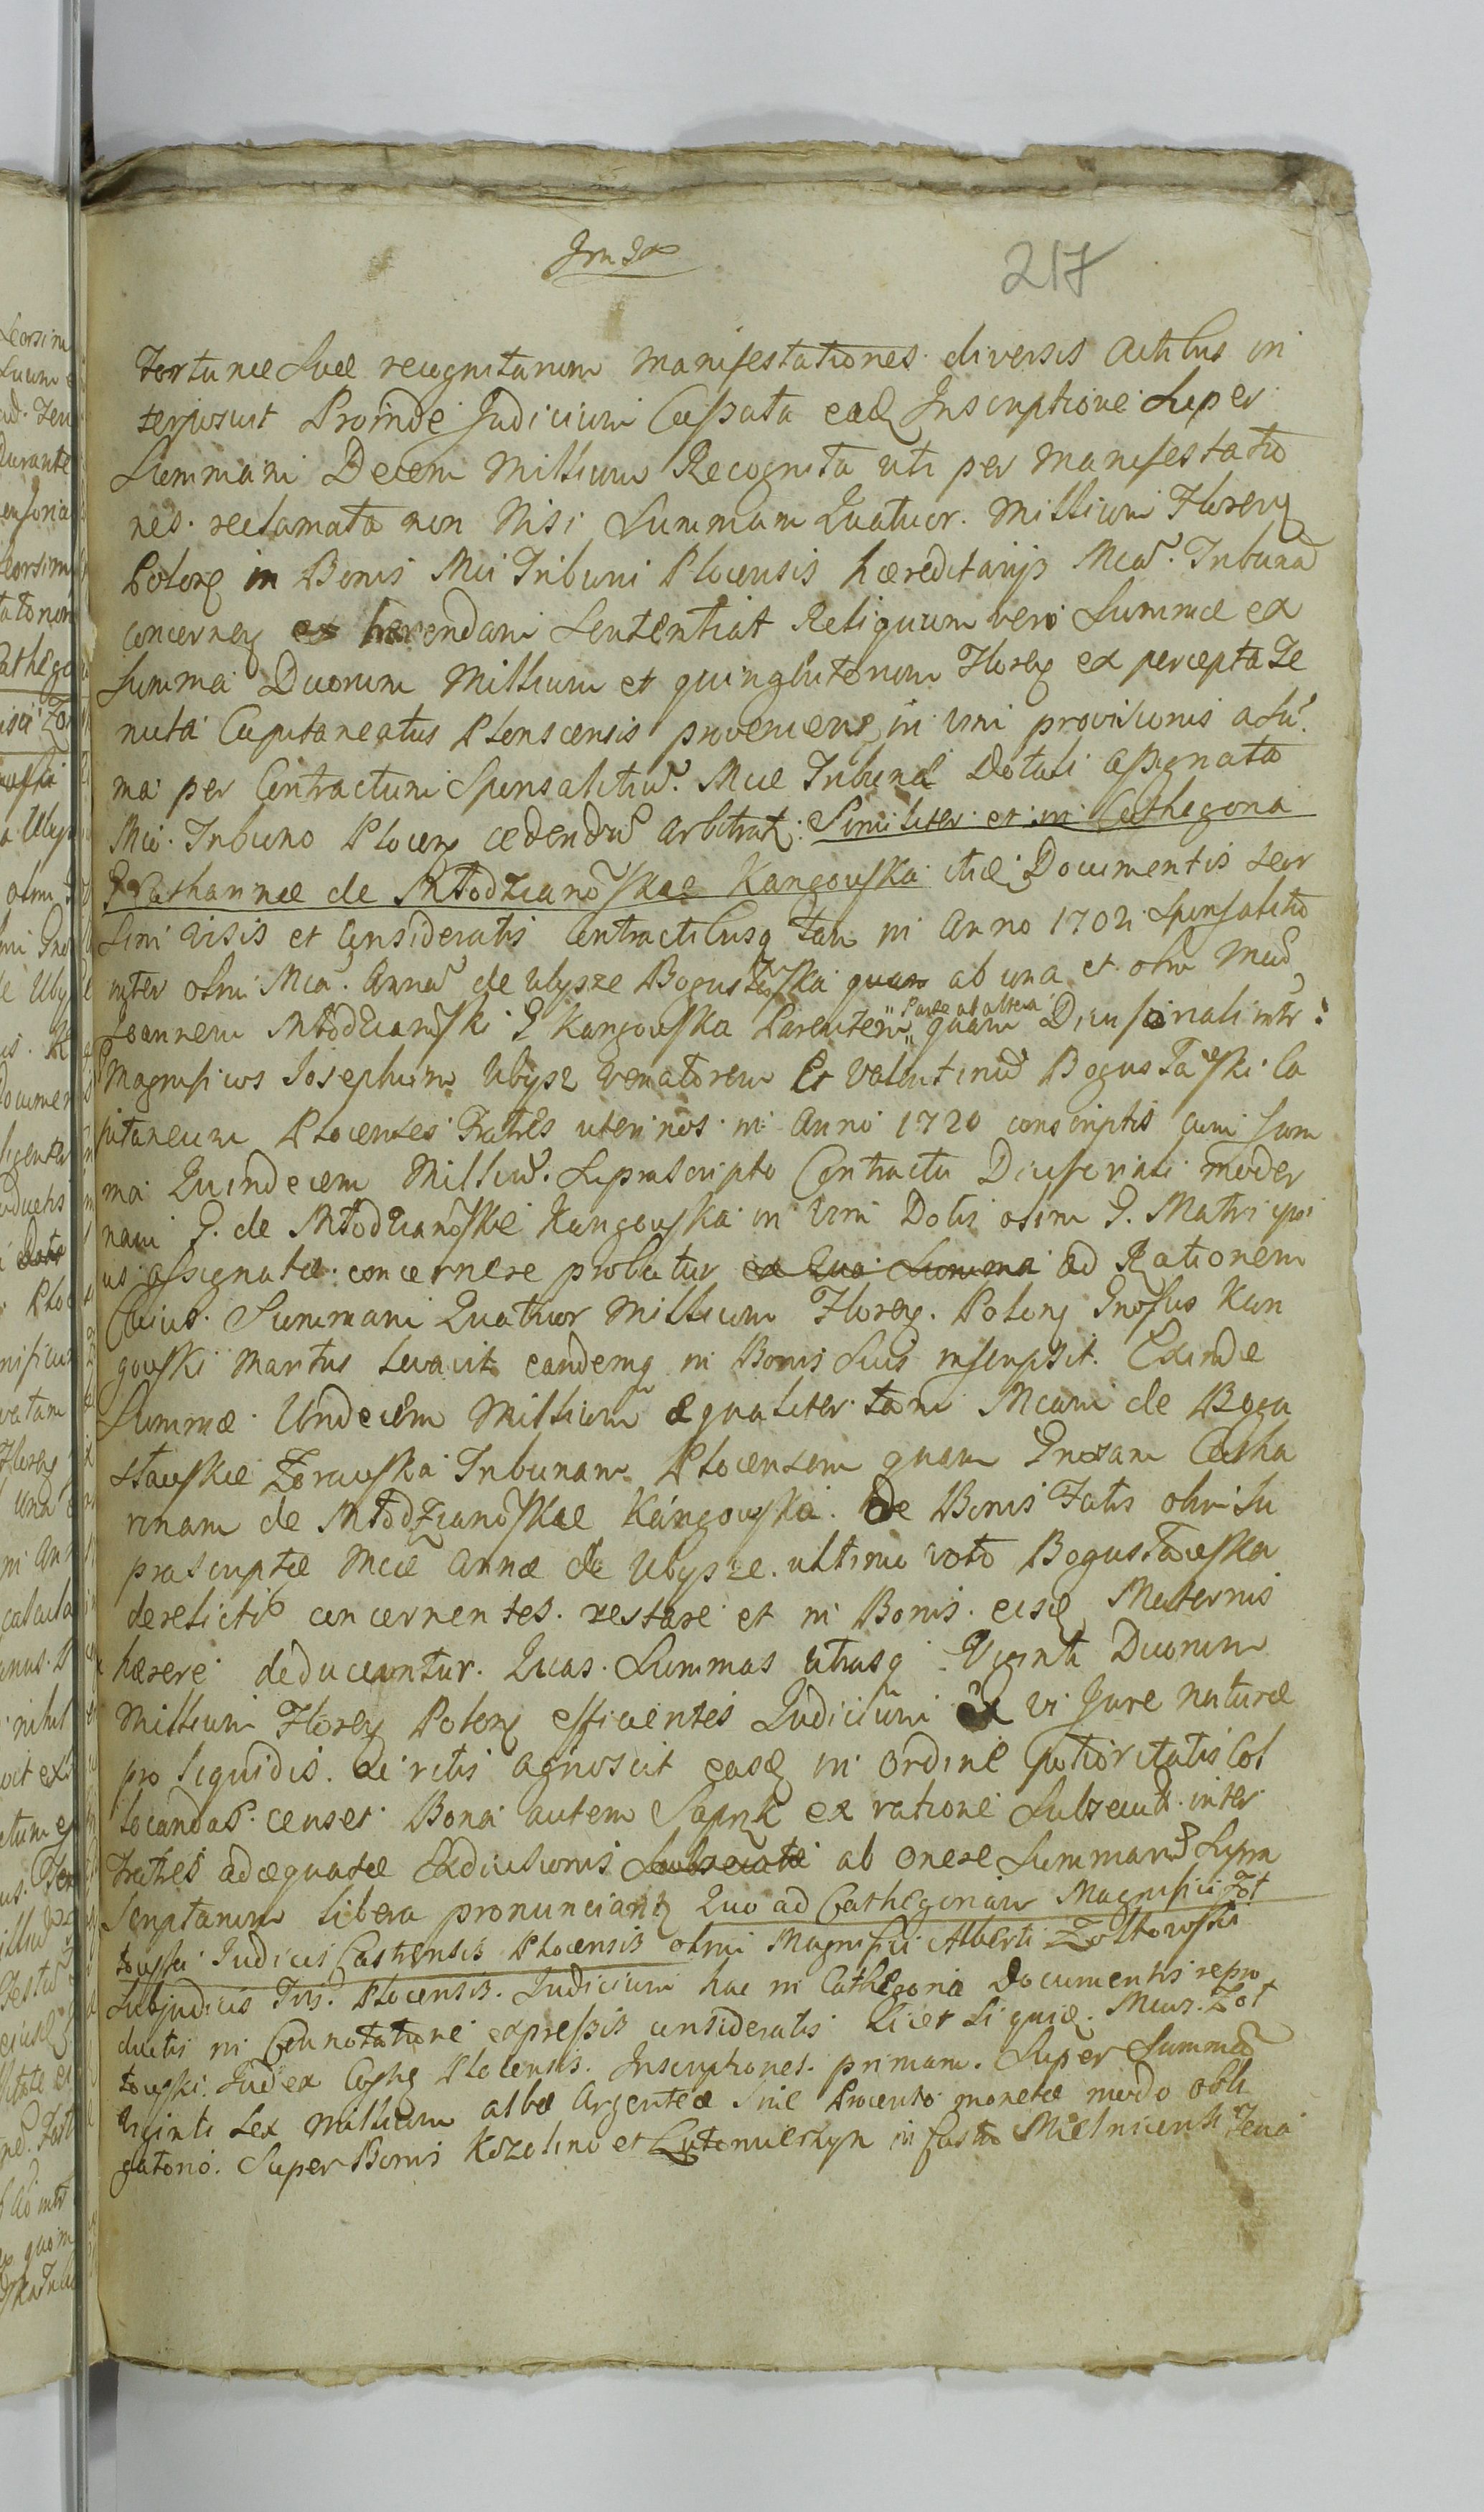 217
Fortunae Suae recognitarum manifestationes diversis Actibus in
terposuit Proinde Judicium Cassata eadq Inscriptione Super
Summam Decem Millium Recognita uti per Manifestatio
nes reclamata non Nisi Summam Quatuor Millium Floreng
Polong in Bonis Mci Tribuni Plocensis haereditarijs Mcã Tribunã
concerneng haerendam Sententiat Reliquum vero Summae ex
Summa Duorum Millium et quingentorum Floreng ex percepta Te
nuta Capitaneatus Plonscensis proveniens in vim provisionis a Su͂
ma per Contractum Sponsalitiũ Mcae Tribunae Dotali assignata
Mco Tribuno Ploceng cedendũ arbitratq Similiter et in Cathegoria
G Catharinae de Młodzianõskae Kangouska itidẽ Documentis seor
sim visis et Consideratis Contractibusq tam in Anno 1702 Sponsalitio
inter olim Mcã Annã de Ubysze Bogusławska ab una et olim Mcũ
Joannem Młodzianõski G Kangouska Parentem parte ab altera quam Divisionali intr
Magnificos Josephum Ubysz Venatorem Et Valentinũ Bogusławski Ca
pitaneum Plocenses Fratres uterinos in Anno 1720 conscriptis cum Sum
ma Quindecem Milliũ Suprascripto Contractu Divisionali moder
nam G. de Młodzianõskie Kangouska in vim Dotis olim G. Matri ipsi
us assignatae concernere probetur ex Qua Summa ad Rationem
Cuius Summam Quatuor Millium Floreng Polong Gnosus Kan
gouski Maritus levavit eandemq in Bonis Suis inscripsit. Exinde
Summae Undecem Millium aequaliter tam Mcam de Bogu
sławskie Zorauska Tribunam Plocensem quam Gnosam Catha
rinam de Młodzianõskae Kangouska De Bonis Fatis olim Su
prascriptae Mcae Annae de Ubysze ultimo voto Bogusławska
derelictis concernentes restare et in Bonis eisdẽ Maternis
haerere deducantur. Quas Summas utrasq Viginti Duorum
Millium Floreng Polong efficientes Judicium Ex vi Jure naturae
pro liquidis agnoscit easdq in Ordine potioritatis Col
locandas censet Bona autem ex ratione Subsecutae inter
Fratres adaequatae Exdivisionis Subsecutae ab onere Summarũ Supra
Scriptarum libera pronunciantq Quo ad Cathegoriam Magnifici Żół
touski Judicis Castrensis Plocensis olim Magnifici Alberti Żołtowski
Subjudicis Tris Plocensis. Judicium hac in Cathegoria Documentis repro
ductis in Connotatione expressis consideratis Licet Mcus Żoł
touski Judex Plocensis Inscriptiones primam Super Summã
Viginti Sex Millium albae Argenteae Sine Procento monetae modo obli
gatorio Super Bonis Kozolino et in Castro Mielnicensi